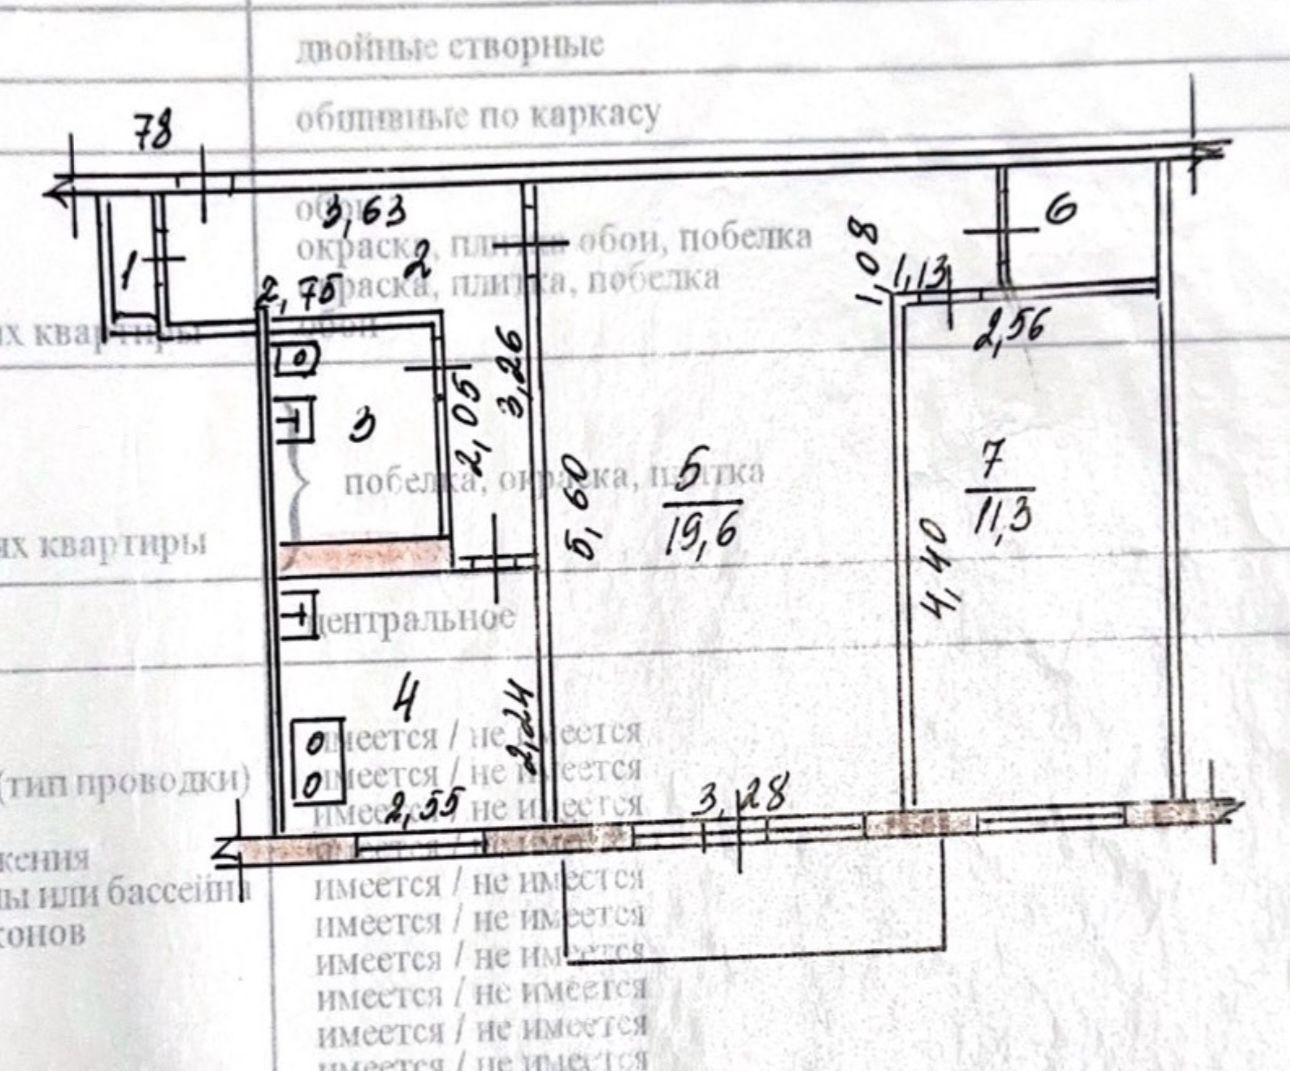 двойные створные
обшивные по каркасу
78
3,63
обои
окраска, плитка обои, побелка
2
окраска, плитка, побелка
1
2,75
1,08
1,13
6
их квартиры
обои
2,56
3,26
2,05
3
побелка, окраска, плитка
5
19,6
7
11,3
5,60
4,40
ях квартиры
центральное
4
2,24
имеется / не имеется
(тип проводки)
имеется / не имеется
имеется / не имеется
2,55
3,28
имеется / не имеется
жения
имеется / не имеется
ны или бассейна
имеется / не имеется
конов
имеется / не имеется
имеется / не имеется
имеется / не имеется
имеется / не имеется